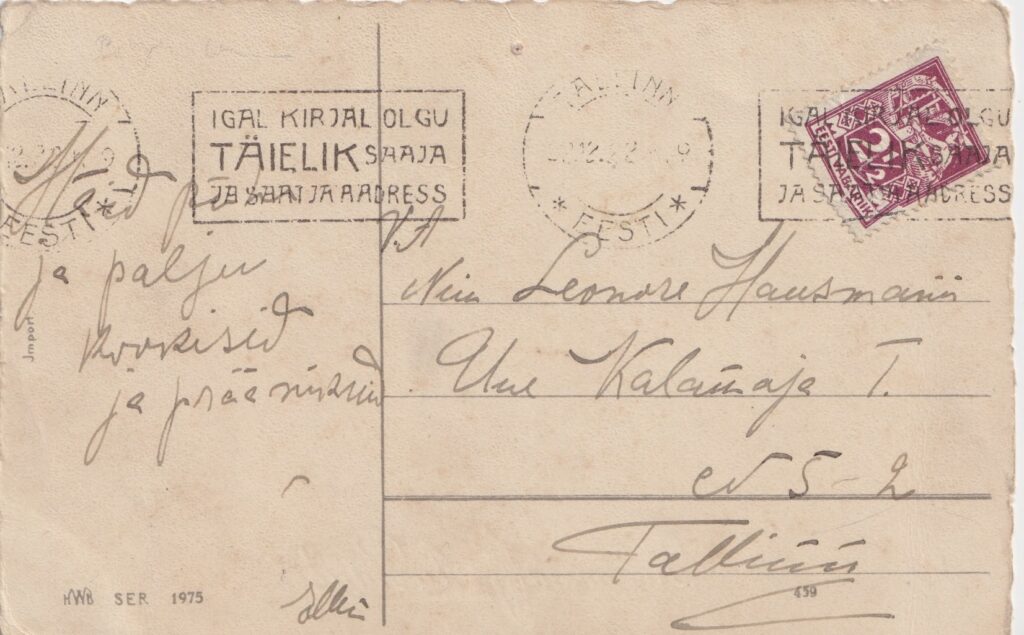 TALLINN
EESTI
IGAL KIRJAL OLGU
TÄIELIK SAAJA
JA SAATJA AADRESS
TALLINN
EESTI
IGAL KIRJAL OLGU
TÄIELIK SAAJA
JA SAATJA AADRESS
EESTI VABARIIK
Häid
ja palju
kookisid
ja präänikuid
V. A.
Leonore Hausmann
Uue Kalamaja T.
5-2
Tallinn
Import
HWB SER 1975
439